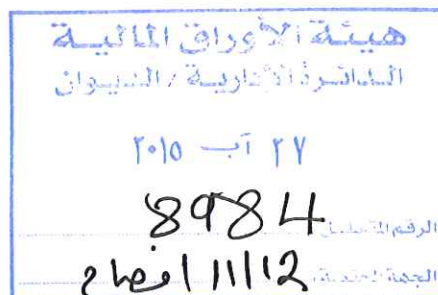 هيئة الأوراق المالية
الدائرة الإدارية / الديوان
٢٧ آب ٢٠١٥
الرقم المتسلسل 8984
الجهة المختصة 11/12 افصاح